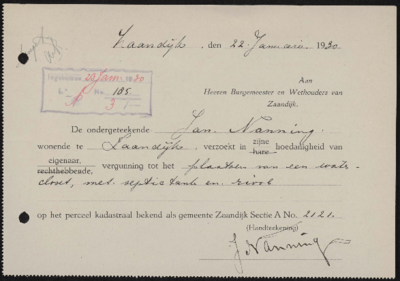 Zaandijk, den 22 Januari 1930
Ingekomen 23 Jan. 1930
No. 105
Aan
Heeren Burgemeester en Wethouders van
Zaandijk.
De ondergeteekende Jan Nanning
wonende te Zaandijk, verzoekt in zijne hare hoedanigheid van
eigenaar, rechthebbende, vergunning tot het plaatsen van een water-
closet, met septictank en riool
op het perceel kadastraal bekend als gemeente Zaandijk Sectie A No. 2121.
(Handteekening)
J Nanning